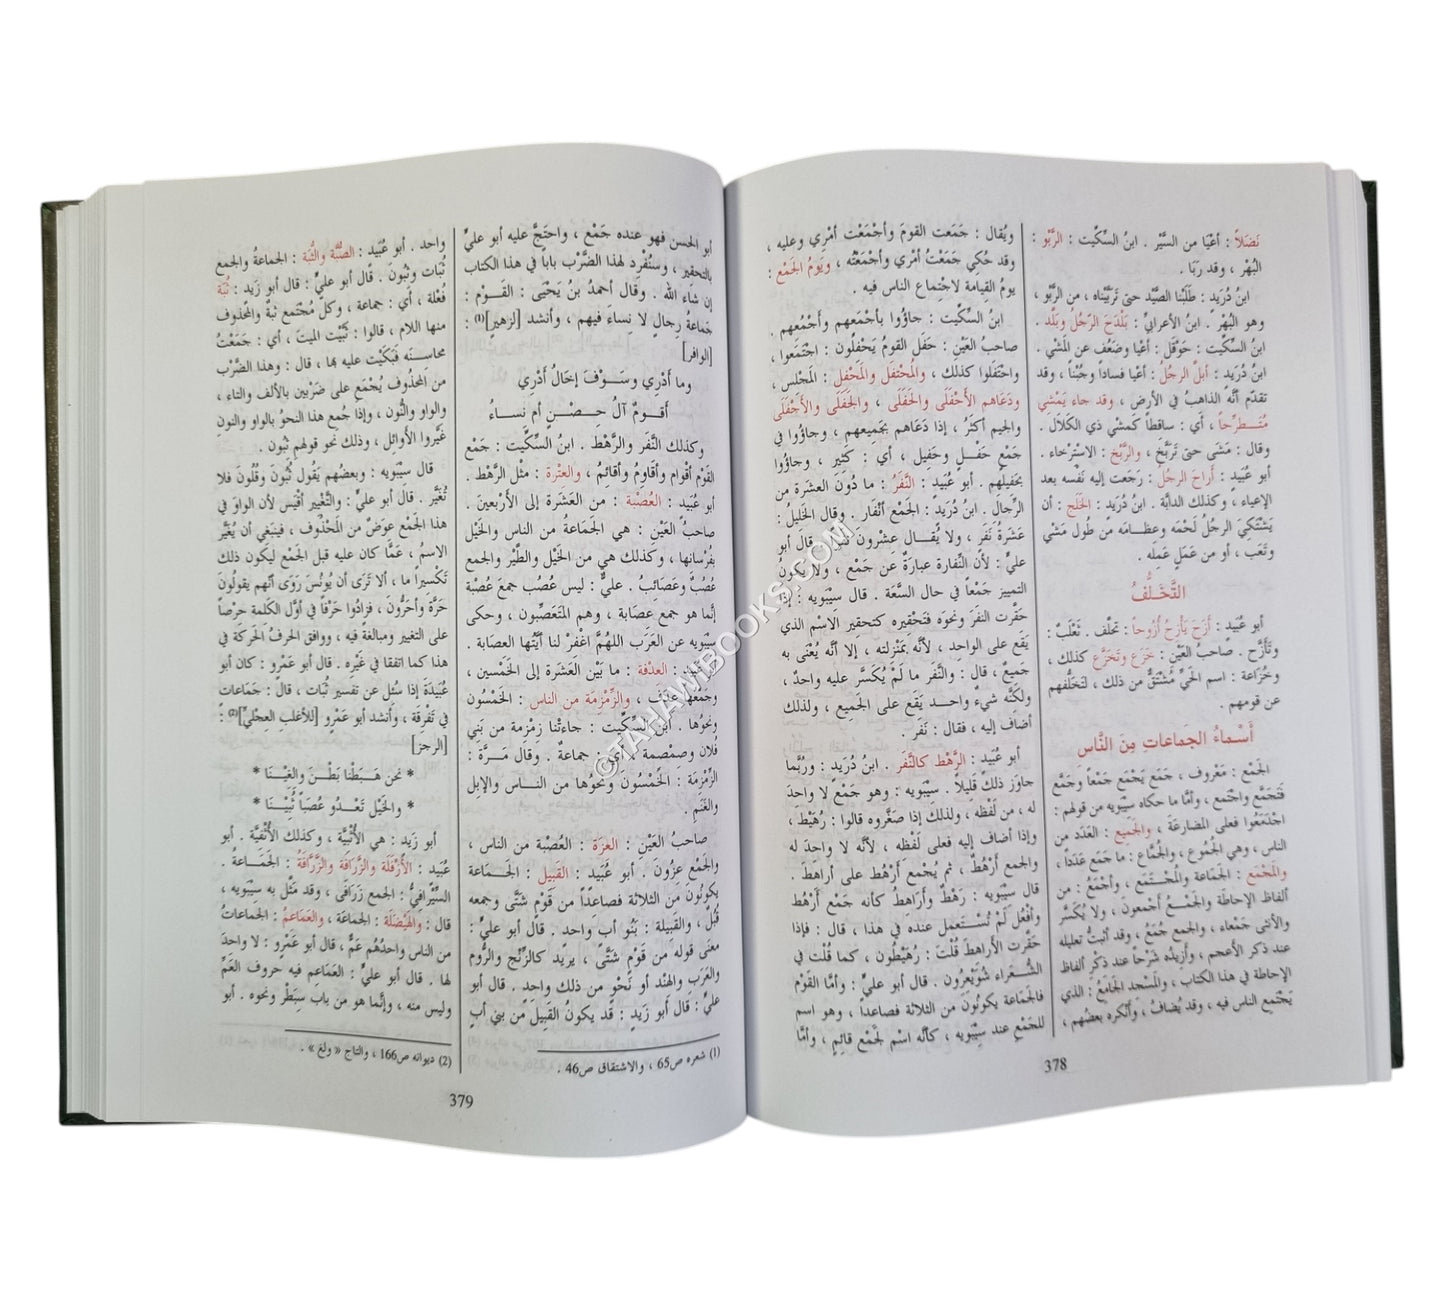 نَضَلاً : أعْيَا من السَّيْر . ابنُ السِّكِّيت : الرَّبْو :
البُهْر ، وقد رَبَا .
ابنُ دُرَيد : طَلَبْنا الصَّيْد حتى تَرَبَّيناه ، من الرَّبْو ،
وهو البُهْر . ابنُ الأعرابيِّ : بَلْدَحَ الرّجُلُ وبَلَّد .
ابنُ السِّكِّيت : حَوْقَل : أعْيا وضَعُف عن المَشْي .
ابنُ دُرَيد : أبلَّ الرجلُ : أعْيا فساداً وخُبْثاً ، وقد
تقدّم أنَّه الذاهبُ في الأرض ، وقد جاء يَمْشي
مُتَـطـرِّحاً ، أي : ساقطاً كمَشي ذي الكَلال .
وقال : مَشَى حتى تَرَبَّخَ ، والرَّبْخ : الاسْتِرْخاء .
أبو عُبَيد : أراحَ الرجُلُ : رَجَعت إليه نَفْسه بعد
الإعياء ، وكذلك الدابَّة . ابنُ دُرَيد : الخَلَج : أن
يَشْتَكِيَ الرجُلُ لَحْمَه وعِظـامَه من طُول مَشْيٍ
وتَعَب ، أو من عَمَلٍ عَمِلَه .
التَّخَـلُّفُ
أبو عُبَيد : أزَحَ يَأْزِحُ أُزُوحاً : تخلّف . ثَعْلَبٌ :
وتَأَزَّح . صاحبُ العَيْن : خَزَع وتَخَزَّع كذلك ،
وخُزَاعة : اسم الحَيِّ مُشْتَقٌّ من ذلك ، لتَخَلُّفهم
عن قومهم .
أَسْماءُ الجَماعاتِ مِنَ النَّاس
الجَمْع : مَعْروف ، جَمَع يَجْمَع جَمْعاً وجَمَّع
فَتَجَمَّع واجْتَمع ، وأمَّا ما حكاه سِيبَويه من قولهم :
اجْدَمَعُوا فعلى المضارعَة ، والجَمِيع : العَدَد من
الناس ، وهي الجُمُوع ، والجُمَّاع : ما جَمَع عَدَداً ،
والمَجْمَع : الجَماعة والمُجْـتَمَع ، وأجْمَعُ : من
ألفاظ الإحَاطَة والجَمْـعُ أجمعونَ ، ولا يُكَسَّر
والأنثى جَمْعاء ، والجمع جُمَعُ ، وقد أثبتُّ تعليله
عند ذكر الأعجم ، وأزِيدُه شَرْحاً عند ذكْر ألفاظ
الإحاطة في هذا الكتاب ، والمَسْجد الجَامعُ : الذي
يَجْتمِع الناس فيه ، وقد يُضافُ ، وأنْكره بعضُهم ،
ويُقال : جَمَعت القومَ وأجْمَعْت أمْرِي وعليه ،
وقد حُكي جَمَعْتُ أمْري وأجْمَعْتُه ، ويَومُ الجَمْع :
يومُ القيامة لاجْتِماع الناس فيه .
ابنُ السِّكِّيت : جاؤوا بأجْمَعهم وأَجْمُعِهم .
صاحبُ العَيْن : حَفَل القومُ يَحْفلُون : اجْتَمعوا ،
واحتَفَلوا كذلك ، والمُحْتَفَل والمَحْفِل : المَجْلس ،
ودَعَاهم الأَحْفَلَى والحَفَلَى ، والجَفَلَى والأَجْفَلَى
والجيم أكثرُ ، إذا دَعَاهم بجَمِيعهم ، وجاؤوا في
جَمْعٍ حَفْـلٍ وحَفِيل ، أي : كَثِير ، وجاؤوا
بحَفيلهم . أبو عُبَيد : النَّفَرُ : ما دُونَ العشَرة من
الرِّجال . ابنُ دُرَيد : الجَمْع أنْفَار . وقال الخَليلُ :
عَشَرةُ نَفَر ، ولا يُقـال عِشْرون نَفَراً . قال أبو
عليٍّ : لأن النِّفارة عبارَةٌ عن جَمْع ، ولا يكُونُ
التمييز جَمْعاً في حال السَّعَة . قال سِيبَويه : إذا
حَقَّرت النفَرَ ونحوَه فتَحْقيره كتحقِير الاسْم الذي
يَقَع على الواحِد ، لأنَّه بمَنْزِلته ، إلا أنَّه يُعْنَى به
جَميعٌ ، قال : والنَّفَر ما لَمْ يُكَسَّر عليه واحدٌ ،
ولكِنَّه شيء واحـد يَقَع على الجَمِيع ، ولذلك
أضاف إليه ، فقال : نَفَر .
أبو عُبَيد : الرَّهْط كالنَّفَر . ابنُ دُرَيد : ورُبَّما
جاوَز ذلك قَليلًا . سِيبَويه : وهو جَمْع لا واحدَ
له ، من لَفْظه ، ولذلك إذا صَغَّروه قالوا : رُهَيْط ،
وإذا أضاف إليه فعلى لَفْظه ، لأنَّه لا واحدَ له
والجمع أرْهُطٌ ، ثم يُجْمع أرْهُط على أراهِطَ .
قال سِيْبَويه : رَهْطٌ وأَرَاهِطُ كأنه جَمْع أَرْهُط
وأفْعُل لَمْ تُسْـتعمل عنده في هذا ، قال : فإذا
حَقَّرت الأراهِطَ قُلْتَ : رُهَيْطُون ، كما قُلْت في
الشُّـعَراء شُوَيْعِرُون . قال أبو عليٍّ : وأمَّا القَوْم
فالجَماعة يكونُونَ من الثلاثة فصاعداً ، وهو اسم
للجَمْع عند سِيبَويه ، كأنَّه اسْم لَجمْع قائِمٍ ، وأمَّا
378
أبو الحسن فهو عنده جَمْع ، واحتَجَّ عليه أبو عليٍّ
بالتحقِير ، وسنُفْرِد لهذا الضَّرْب باباً في هذا الكتاب
إن شاء الله . وقال أحمدُ بنُ يَحْيَى : القَـوْم :
جَماعةُ رِجالٍ لا نساءَ فيهم ، وأنشد [لزهير](1) :
[الوافر]
وما أَدْرِي وسَــوْفَ إخَالُ أَدْرِي
أَقَـومٌ آلُ حِـصْــنٍ أم نسـاءُ
وكذلك النَّفَر والرَّهْط . ابنُ السِّكِّيت : جَمْع
القَوْم أقْوام وأقَاوِمُ وأقائِمُ ، والعِتْرة : مثْل الرَّهْط .
أبو عُبَيد : العُصْبَة : من العَشَرة إلى الأرْبعينَ .
صاحبُ العَيْن : هي الجَماعةُ من الناس والخَيْل
بفُرْسانها ، وكذلك هي من الخَيْل والطَّيْر والجمع
عُصَبٌ وعَصائبُ . عليٌّ : ليس عُصَب جمعَ عُصْبَة
إنَّما هو جمع عِصَابة ، وهم المَتَعَصِّبون ، وحكى
سِيْبَويه عن العَرَب اللهُمَّ اغْفرْ لنا أيَّتُها العصابَة .
أبو عُبَيد : العِدْفة : ما بَيْن العَشَرة إلى الخَمْسين ،
وجَمْعُها عِدَف ، والزِّمْزِمَة من الناس : الخَمْسُون
ونحوُها . ابنُ السِّكِّيت : جاءَتْنا زِمْزِمة من بَني
فُلان وصمْصِمة ، أي : جماعةٌ . وقال مَـرَّةً :
الزِّمْزِمَة : الخَمْسُون ونَحْوُها من النـاس والإبل
والغَنَم .
صاحبُ العَيْن : العِزَة : العُصْبَة من الناس ،
والجَمْع عِزُون . أبو عُبَيد : القَبِيلُ : الجَـماعة
يكونُونَ من الثلاثة فصاعداً من قَوْمٍ شَتَّى وجمعه
قُبُلٌ ، والقَبِيلة : بَنُو أبٍ واحد . قال أبو عليٍّ :
معنَى قوله من قَوْمٍ شَتَّى ، يرِيد كالزِّنْج والرُّوم
والعَرَب والهِنْد أو نَحْوٍ من ذلك واحد . قال أبو
عليٍّ : قال أبو زَيد : قد يكونُ القَبِيلُ من بني أبٍ
(1) شعره ص65 ، والاشتقاق ص46 .
واحد . أبو عُبَيد : الصُّبَّة والثُّبَة : الجماعةُ والجمع
ثُبَات وثُبون . قال أبو عليٍّ : قال أبو زَيد : ثُبَة
فُعْلَة ، أي : جماعة ، وكلّ مُجْتمَع ثبةٌ والمحذوف
منها اللام ، قالوا : ثَبَّيْت الميتَ ، أي : جَمَعْتُ
محاسِنَه فَبَكَيْت عليه بها ، قال : وهذا الضَّرْب
من المحذُوف يُجْمَع على ضَرْبين بالألف والتاء ،
والواو والنُّون ، وإذا جُمع هذا النحوُ بالواو والنونِ
غَيَّروا الأوائل ، وذلك نحو قولهم ثبُون .
قال سِيْبَويه : وبعضُهم يَقُول ثُبُونَ وقُلُونَ فلا
تُغَيَّر . قال أبو عليٍّ : والتَّغْيير أقْيَس لأن الواوَ في
هذا الجَمْع عوَضٌ من المَحْذُوف ، فينبَغِي أن يُغَيَّر
الاسمُ ، عَمَّا كان عليه قبل الجَمْع ليكون ذلك
تَكْسيراً ما ، ألا تَرَى أن يُونسَ رَوَى أنَّهم يقولُونَ
حَرَّة وأحَرُّونَ ، فزادُوا حَرْفاً في أوَّل الكَلمة حِرْصاً
على التغيير ومبالغةً فيه ، ووافق الحرفُ الحَركة في
هذا كما اتفقا في غَيْره . قال أبو عَمْرو : كان أبو
عُبَيْدَة إذا سُئل عن تفسير ثُبَات ، قال : جَماعات
في تَفْرقة ، وأنشد أبو عَمْرو [للأغلب العِجْليِّ](2) :
[الرجز]
* نحن هَـبَطْنا بَطْـنَ والغِيْنَـا *
* والخَيْل تَعْـدُو عُصَباً ثُبِيْـنَا *
أبو زَيد : هي الأُثْبيَّة ، وكذلك الأُثْفيَّة . أبو
عُبَيد : الأَزْفَلَة والزَّرافَة والزَّرَّافةُ : الجَمـاعـة .
السِّيْرافيُّ : الجمع زَرَافَى ، وقد مثَّل به سِيْبَويه ،
قال : والهَيْضَلَة : الجَماعَة ، والعَمَاعمُ : الجَماعاتُ
من الناس واحدُهُم عَمٌّ ، قال أبو عَمْرو : لا واحدَ
لها . قال أبو عليٍّ : العَمَاعِم فيه حروف العَمِّ
وليس منه ، وإنَّما هو من باب سِبَطْرٍ ونحوه . أبو
(2) ديوانه ص166 ، والتاج « ولغ » .
379
©TAHAWIBOOKS.COM